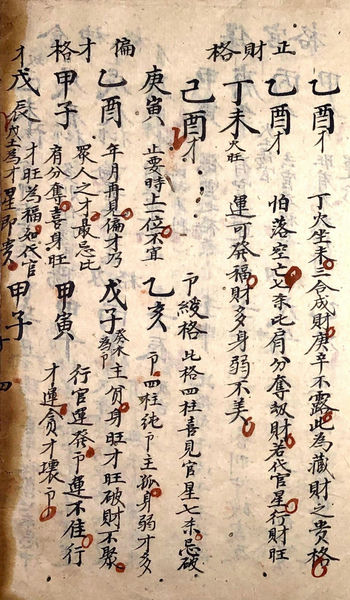 正財格
乙酉 才 丁火生未三合成財庚辛不露此為藏財之貴格
乙酉 才 怕落空亡七未比肩分奪劫財若代官星行財旺
丁未 火旺 運可發福財多身弱不美
己酉 才 卩綬格此格四柱喜見官星七杀忌破
偏才格
庚寅 止要時上一位不宜 乙亥 卩四柱純卩主孤身弱才多
乙酉 年月再見偏才乃衆人之才最忌比 戊子 癸水為卩 主貧身旺才旺破財不聚
甲子 肩分奪喜身旺 甲寅 行官運發卩運不佳行
才旺為福如代官 才運貪才壞卩
戊辰 戊土為才星即貴 甲子